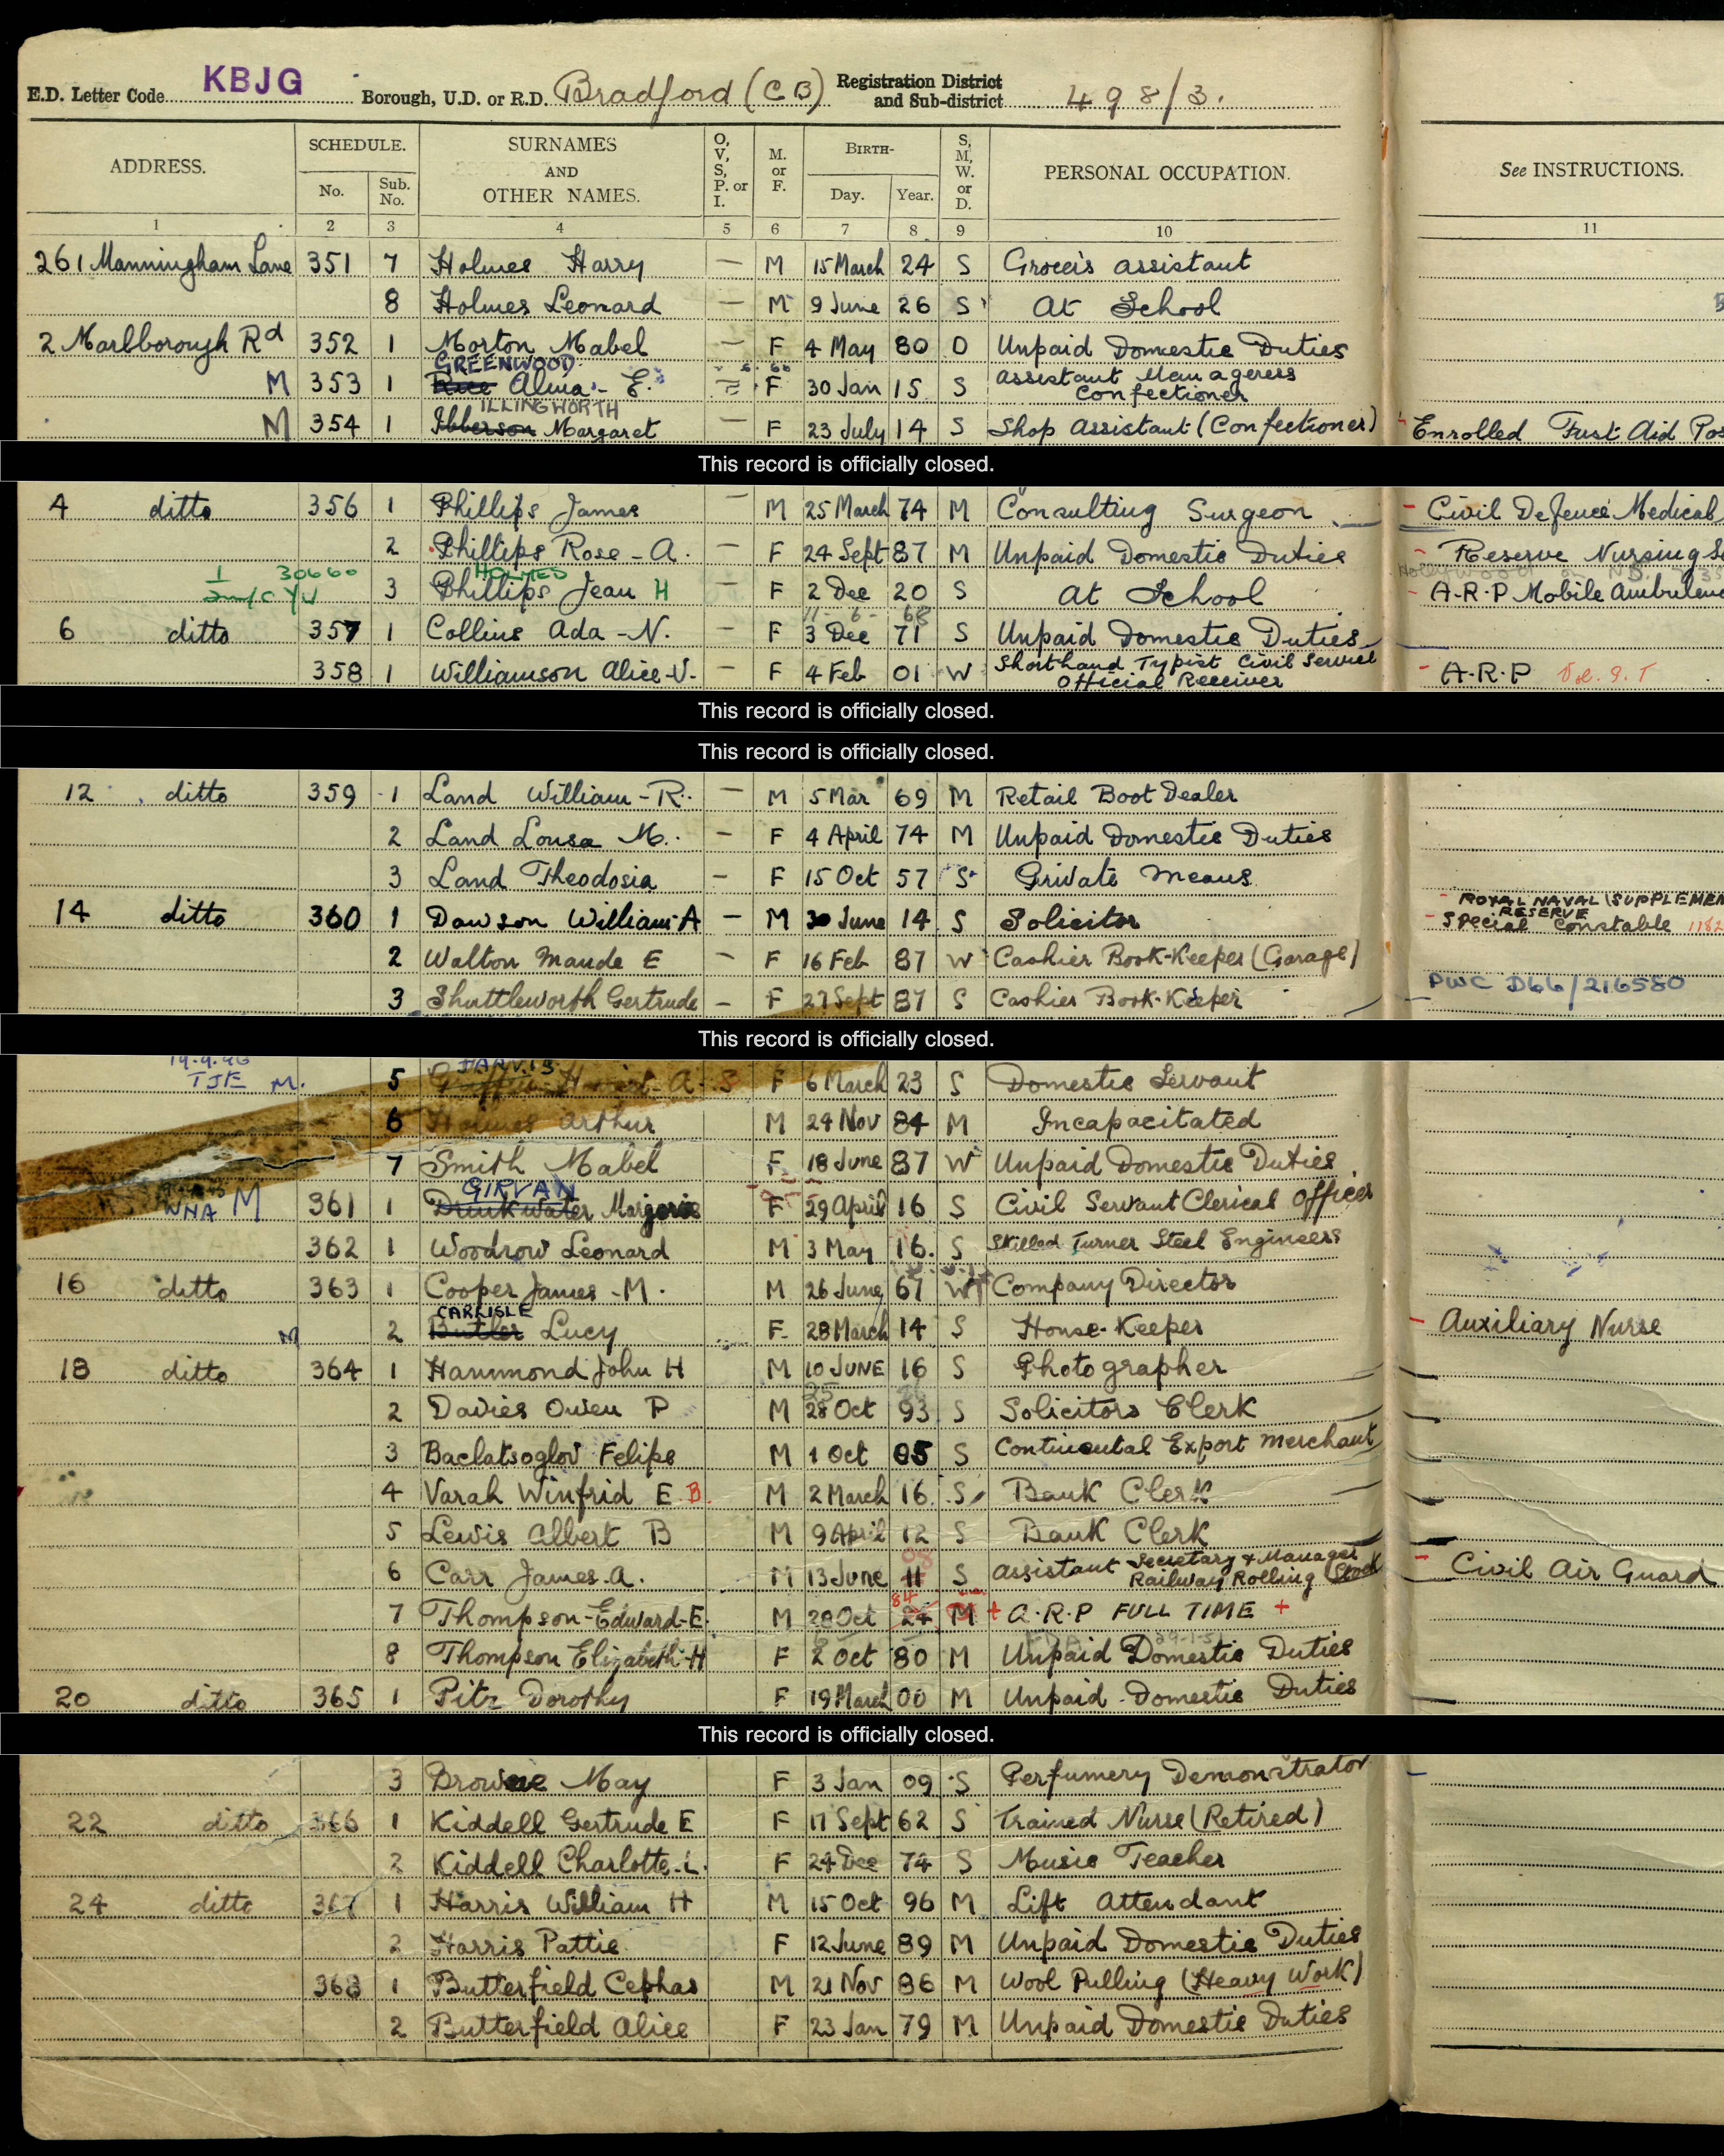 E.D. Letter Code KBJG Borough, U.D. or R.D. Bradford (CB) Registration District and Sub-district 498/3.
ADDRESS. SCHEDULE. No. Sub. No. SURNAMES AND OTHER NAMES. O, V, S, P. or I. M. or F. BIRTH- Day. Year. S, M, W. or D. PERSONAL OCCUPATION. See INSTRUCTIONS.
1 2 3 4 5 6 7 8 9 10 11
261 Manningham Lane 351 7 Holmes Harry — M 15 March 24 S Grocers assistant
8 Holmes Leonard — M 9 June 26 S At School
2 Marlborough Rd 352 1 Morton Mabel — F 4 May 80 D Unpaid Domestic Duties
GREENWOOD
M 353 1 Rice Alma E. F 30 Jan 15 S Assistant Manageress Confectioner
ILLINGWORTH
M 354 1 Ibberson Margaret — F 23 July 14 S Shop Assistant (Confectioner) Enrolled First Aid Pos
This record is officially closed.
4 ditto 356 1 Phillips James — M 25 March 74 M Consulting Surgeon — Civil Defence Medical
2 Phillips Rose - A. — F 24 Sept 87 M Unpaid Domestic Duties - Reserve Nursing
HOLMES
3 Phillips Jean H F 2 Dec 20 S At School - A-R-P Mobile Ambulance
11-6-68
6 ditto 357 1 Collins Ada - N. — F 3 Dec 71 S Unpaid Domestic Duties
358 1 Williamson Alice-V. — F 4 Feb 01 W Shorthand Typist Civil Service Official Receiver - A-R-P
This record is officially closed.
This record is officially closed.
12 ditto 359 1 Land William - R. — M 5 Mar 69 M Retail Boot Dealer
2 Land Lousa M. - F 4 April 74 M Unpaid Domestic Duties
3 Land Theodosia - F 15 Oct 57 S Private Means
- ROYAL NAVAL SUPPLEMEN RESERVE
14 ditto 360 1 Dawson William A - M 30 June 14 S Solicitor - Special Constable 1182
2 Walton Maude E - F 16 Feb 87 W Cashier Book-Keeper (Garage)
3 Shuttleworth Gertrude - F 27 Sept 87 S Cashier Book-Keeper PWC D66/216580
This record is officially closed.
JARVIS
TJE M. 5 A. S F 6 March 23 S Domestic Servant
6 Holmes Arthur M 24 Nov 84 M Incapacitated
7 Smith Mabel F 18 June 87 W Unpaid Domestic Duties
GIRVAN
WNA M 361 1 Drinkwater Marjorie F 29 April 16 S Civil Servant Clerical Officer
362 1 Woodrow Leonard M 3 May 16. S Skilled Turner Steel Engineers
16 ditto 363 1 Cooper James - M. M 26 June 67 W Company Director
CARLISLE
M 2 Butler Lucy F 28 March 14 S House-Keeper - Auxiliary Nurse
18 ditto 364 1 Hammond John H M 10 JUNE 16 S Photographer
25
2 Davies Owen P M 28 Oct 93 S Solicitors Clerk
3 Baclatsoglov Felipe M 1 Oct 05 S Continental Export Merchant
4 Varah Winfrid E B. M 2 March 16 S Bank Clerk
5 Lewis Albert B M 9 April 12 S Bank Clerk
08
6 Carr James. A. M 13 June 11 S Assistant Secretary & Manager Railway Rolling Stock - Civil Air Guard
84
7 Thompson - Edward - E. M 28 Oct 24 M + A.R.P FULL TIME +
8 Thompson Elizabeth - H F 2 Oct 80 M Unpaid Domestic Duties
20 ditto 365 1 Pitz Dorothy F 19 March 00 M Unpaid Domestic Duties
This record is officially closed.
3 Browne May F 3 Jan 09 S Perfumery Demonstrator
22 ditto 366 1 Kiddell Gertrude E F 17 Sept 62 S Trained Nurse (Retired)
2 Kiddell Charlotte. L. F 24 Dec 74 S Music Teacher
24 ditto 367 1 Harris William H M 15 Oct 96 M Lift Attendant
2 Harris Pattie F 12 June 89 M Unpaid Domestic Duties
368 1 Butterfield Cephas M 21 Nov 86 M Wool Pulling (Heavy Work)
2 Butterfield Alice F 23 Jan 79 M Unpaid Domestic Duties